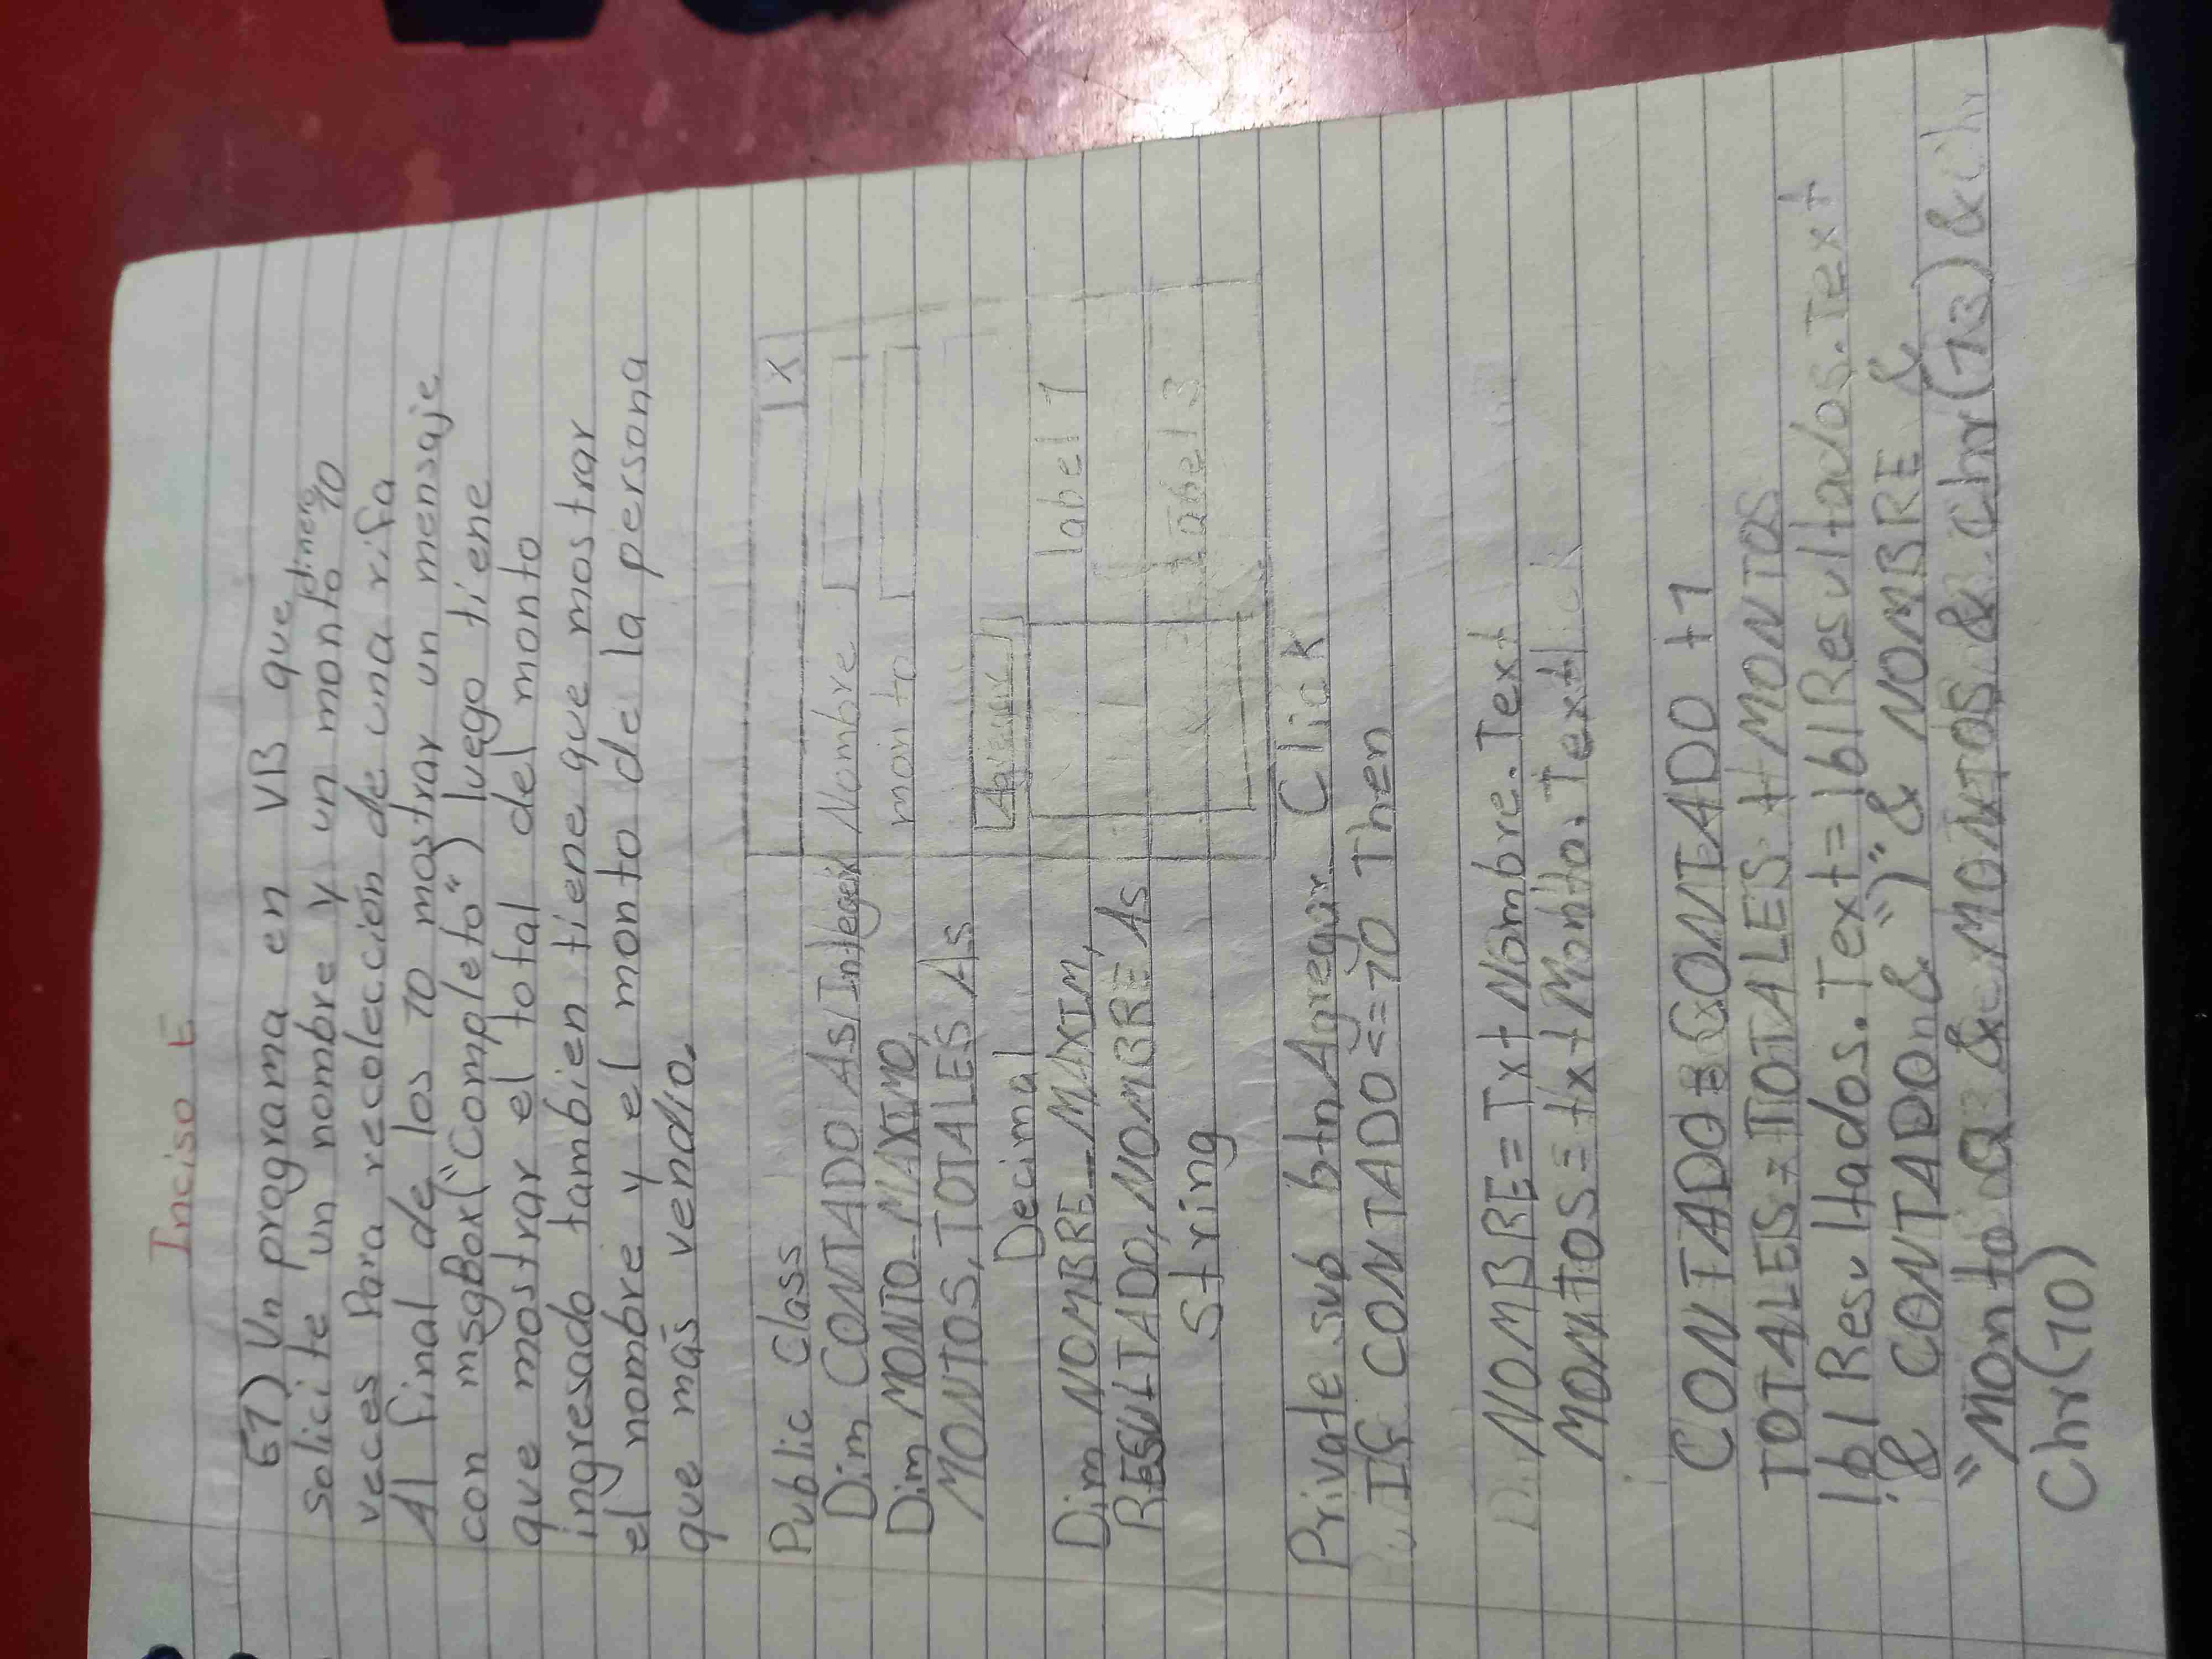 Inciso E
E1) Un programa en VB que
solicite un nombre y un monto dinero 10
veces Para recolección de una rifa
Al final de los 10 mostrar un mensaje
con msgbox("Completo") luego tiene
que mostrar el total del monto
ingresado tambien tiene que mostrar
el nombre y el monto de la persona
que más vendio.
Public Class
Dim CONTADO As Integer
Dim MONTO_MAXIMO,
MONTOS, TOTALES As
Decimal
Dim NOMBRE_MAXIM,
RESULTADO, NOMBRE As
String
X
Nombre
monto
Agregar
label 1
label 3
Private sub btnAgregar Click
IF CONTADO <= 10 Then
NOMBRE = Txt Nombre.Text
MONTOS = txt Monto.Text
CONTADO = CONTADO +1
TOTALES = TOTALES + MONTOS
lbl Resultados.Text = lblResultados.Text
& CONTADO & ")" & NOMBRE &
"Monto Q" & MONTOS & Chr(13) &
Chr(10)